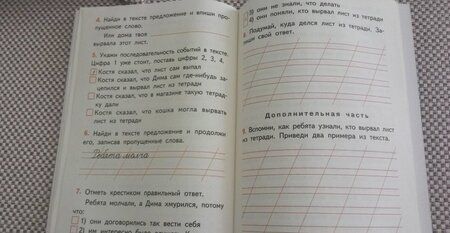 4. Найди в тексте предложение и впиши про-
пущенное слово.
Или дома твоя
вырвала этот лист.
5. Укажи последовательность событий в тексте.
Цифра 1 уже стоит, поставь цифры 2, 3, 4.
1 Костя сказал, что лист сам выпал
Костя сказал, что Дима сам где-нибудь за-
цепился и вырвал лист из тетради
Костя сказал, что в магазине такую тетрад-
ку дали
Костя сказал, что кошка могла вырвать
лист из тетради
6. Найди в тексте предложение и продолжи
его, записав пропущенные слова.
Ребята молча
7. Отметь крестиком правильный ответ.
Ребята молчали, а Дима хмурился, потому
что:
1) они договорились так вести себя
2) им
3) они не знали, что делать
4) они поняли, кто вырвал лист из тетради
Подумай, куда делся лист из тетради. За-
пиши свой ответ.
Дополнительная часть
9. Вспомни, как ребята узнали, кто вырвал лист
из тетради. Приведи два примера из текста.